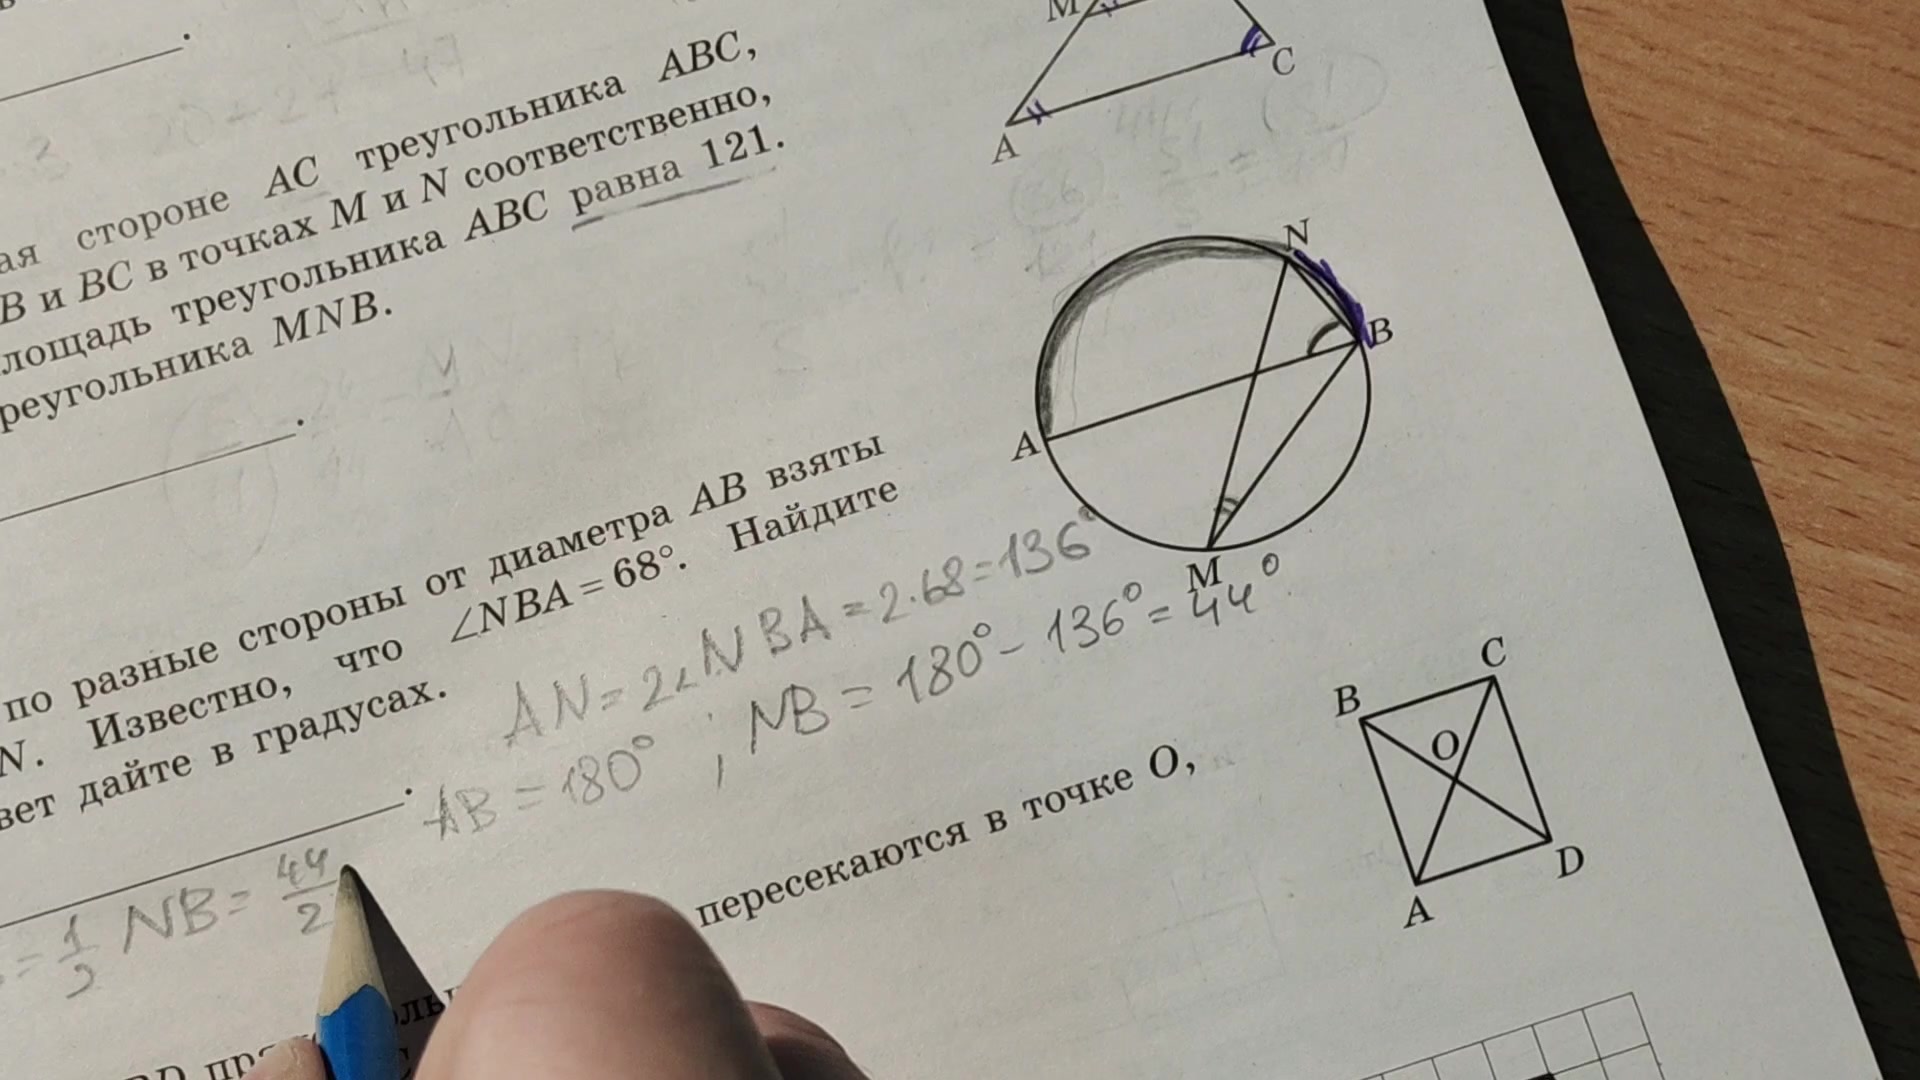 ая стороне AC треугольника ABC,
B и BC в точках M и N соответственно,
лощадь треугольника ABC равна 121.
реугольника MNB.
M
A
C
N
B
A
M
по разные стороны от диаметра AB взяты
N. Известно, что ∠NBA = 68°. Найдите
вет дайте в градусах.
AN = 2∠NBA = 2·68 = 136°
AB = 180° ; NB = 180° - 136° = 44°
= 1/2 NB = 44/2
пересекаются в точке O,
B
C
O
A
D